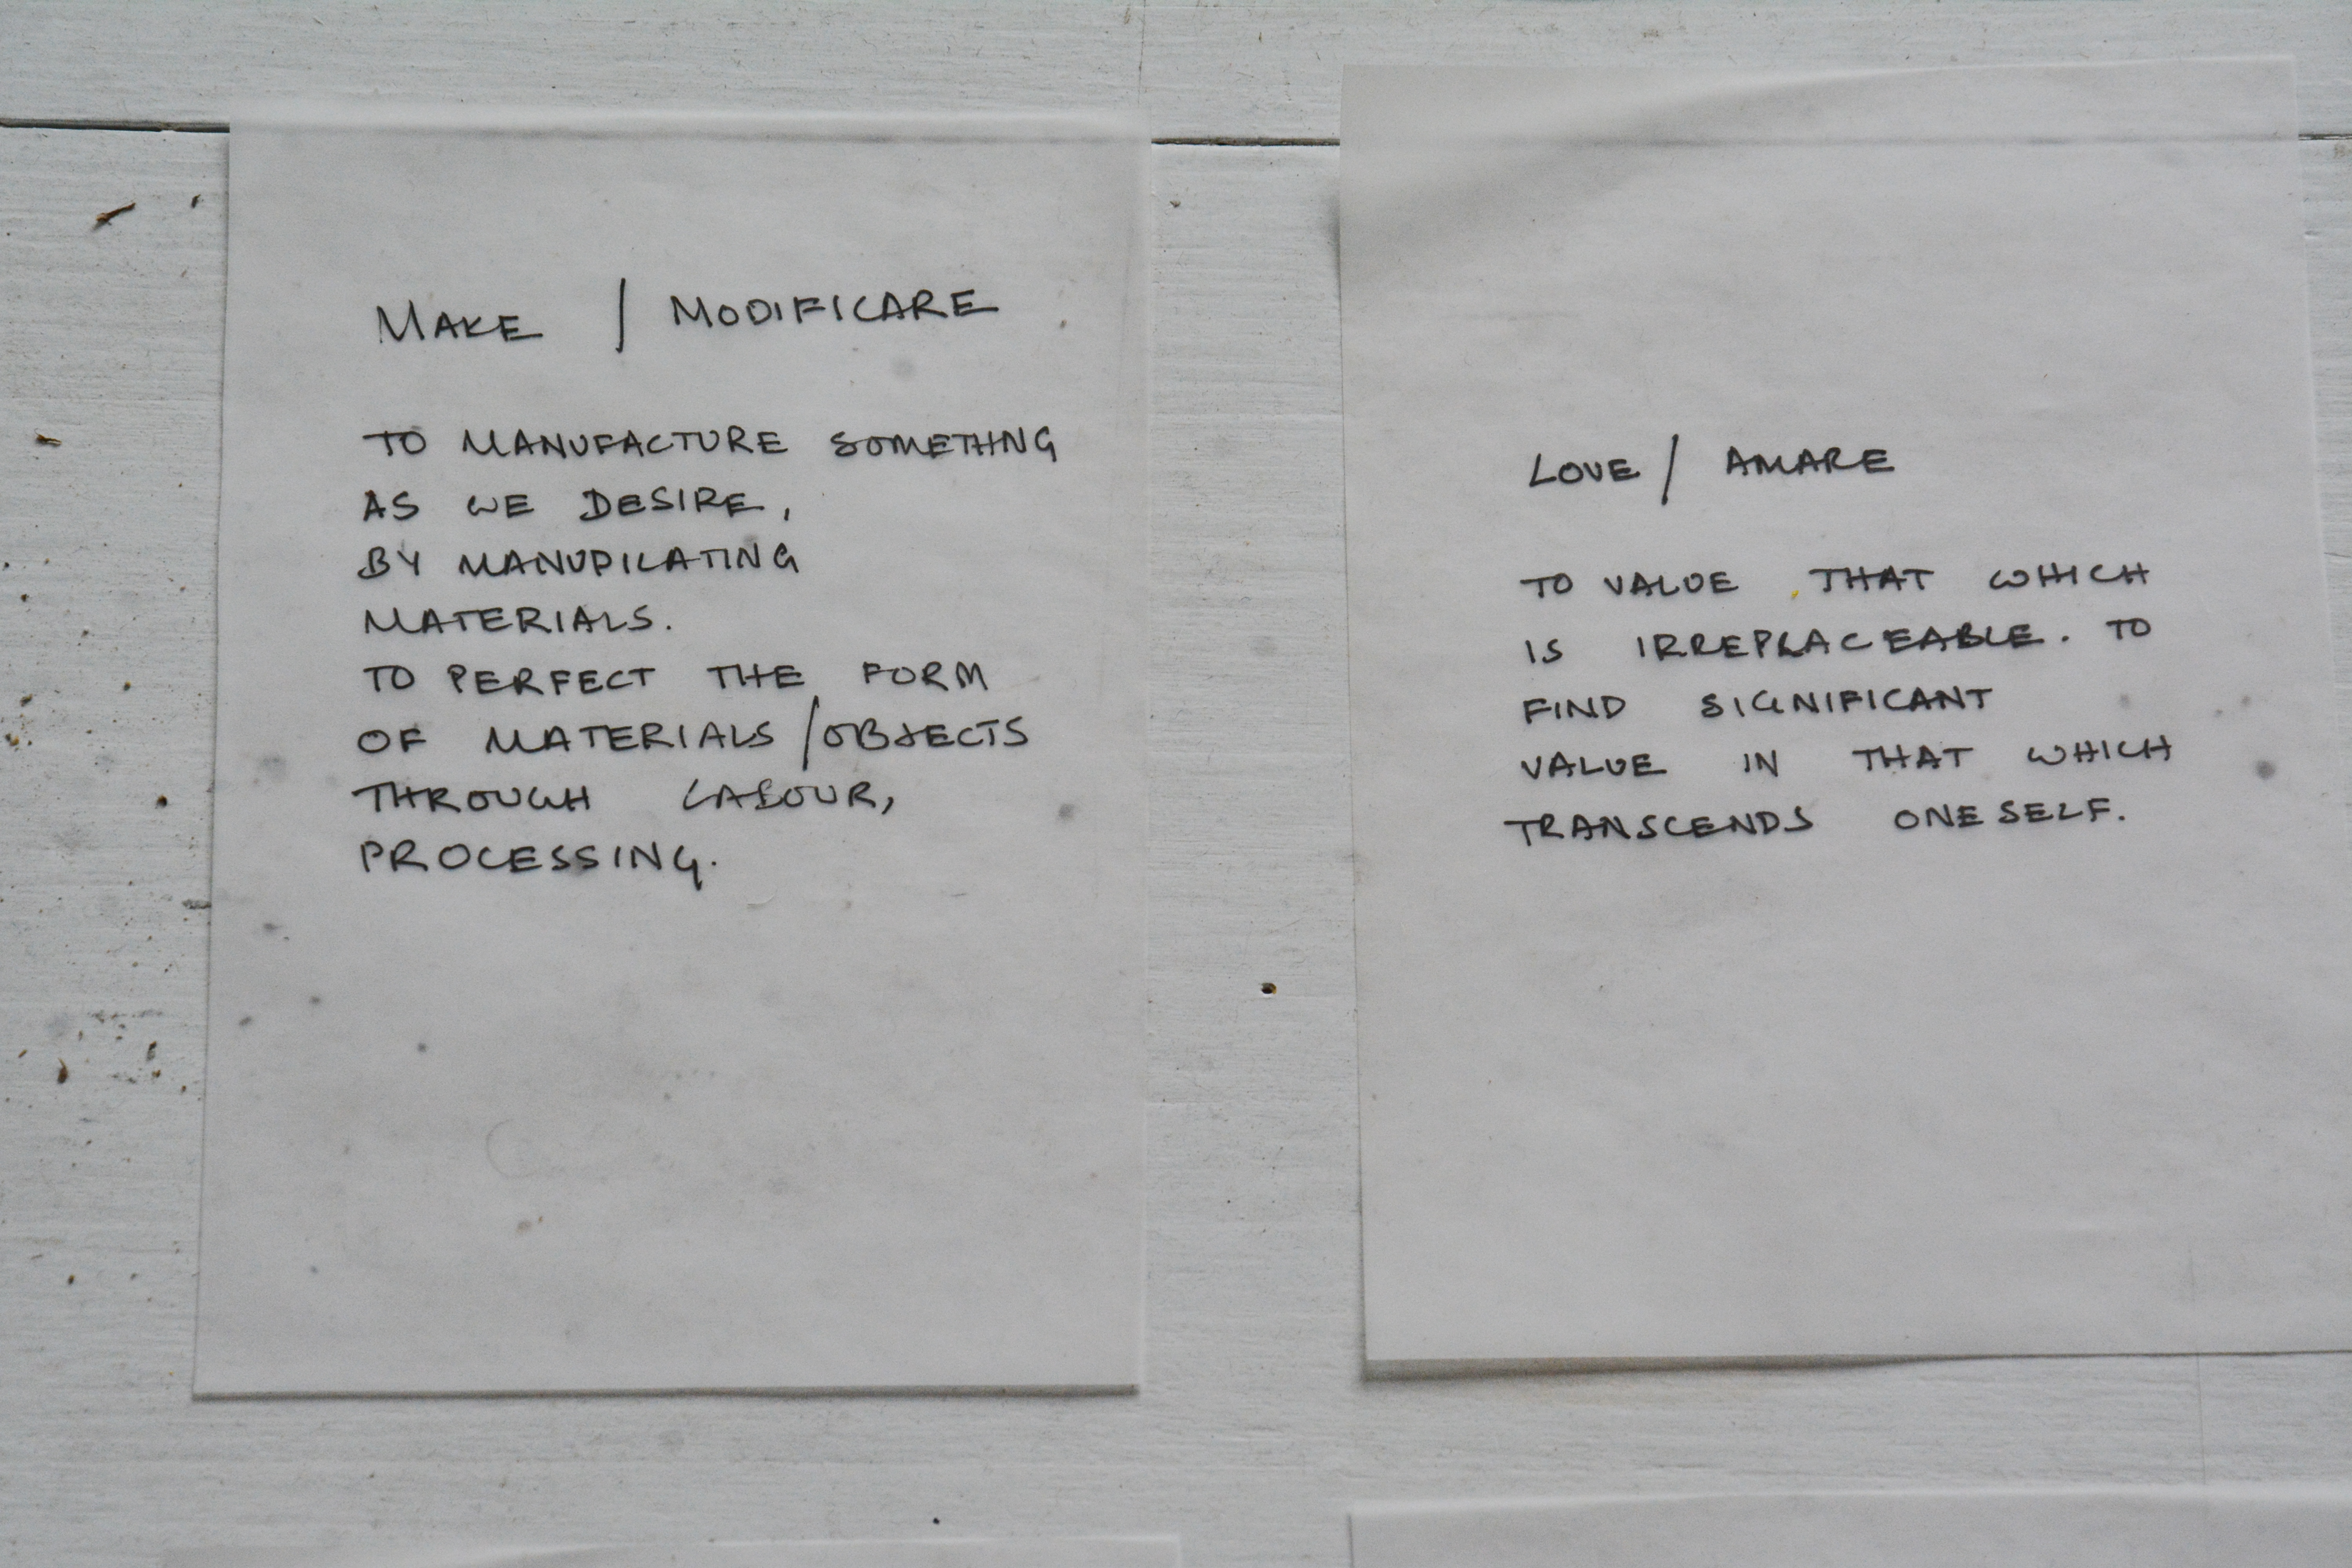 MAKE / MODIFICARE
TO MANUFACTURE SOMETHING
AS WE DESIRE,
BY MANUPILATING
MATERIALS.
TO PERFECT THE FORM
OF MATERIALS/OBJECTS
THROUGH LABOUR,
PROCESSING.
LOVE / AMARE
TO VALUE THAT WHICH
IS IRREPLACEABLE. TO
FIND SIGNIFICANT
VALUE IN THAT WHICH
TRANSCENDS ONESELF.